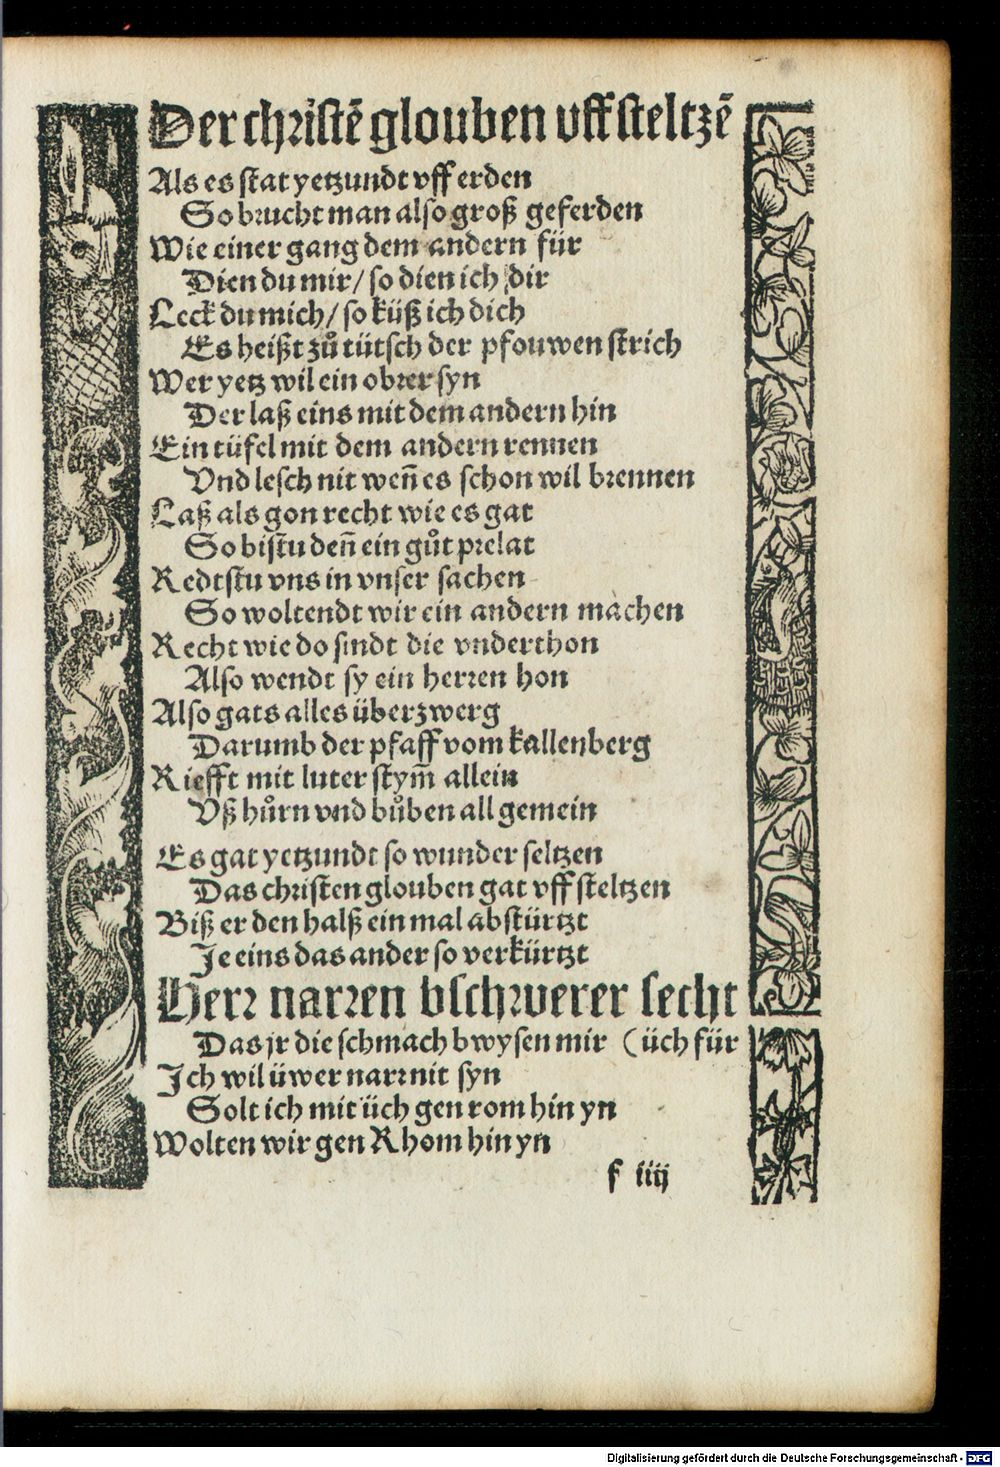 Der christē glouben vff steltzē
Als es stat yetzundt vff erden
So brucht man also groß geferden
Wie einer gang dem andern für
Dien du mir / so dien ich dir
Leck du mich / so küß ich dich
Es heißt zů tütsch der pfouwen strich
Wer yetz wil ein obrer syn
Der laß eins mit dem andern hin
Ein tüfel mit dem andern rennen
Vnd lesch nit weñ es schon wil brennen
Laß als gon recht wie es gat
So bistu deñ ein gůt prelat
Redtstu vns in vnser sachen
So woltendt wir ein andern machen
Recht wie do sindt die vnderthon
Also wendt sy ein herren hon
Also gats alles überzwerg
Darumb der pfaff vom kallenberg
Riefft mit luter stym̃ allein
Vß hůrn vnd bůben all gemein
Es gat yetzundt so wunder seltzen
Das christen glouben gat vff steltzen
Biß er den halß ein mal abstürtzt
Je eins das ander so verkürtzt
Herr narren bschwerer secht
Das jr die schmach bwysen mir (üch für
Ich wil üwer narr nit syn
Solt ich mit üch gen rom hin yn
Wolten wir gen Rhom hin yn
f iiij
Digitalisierung gefördert durch die Deutsche Forschungsgemeinschaft - DFG